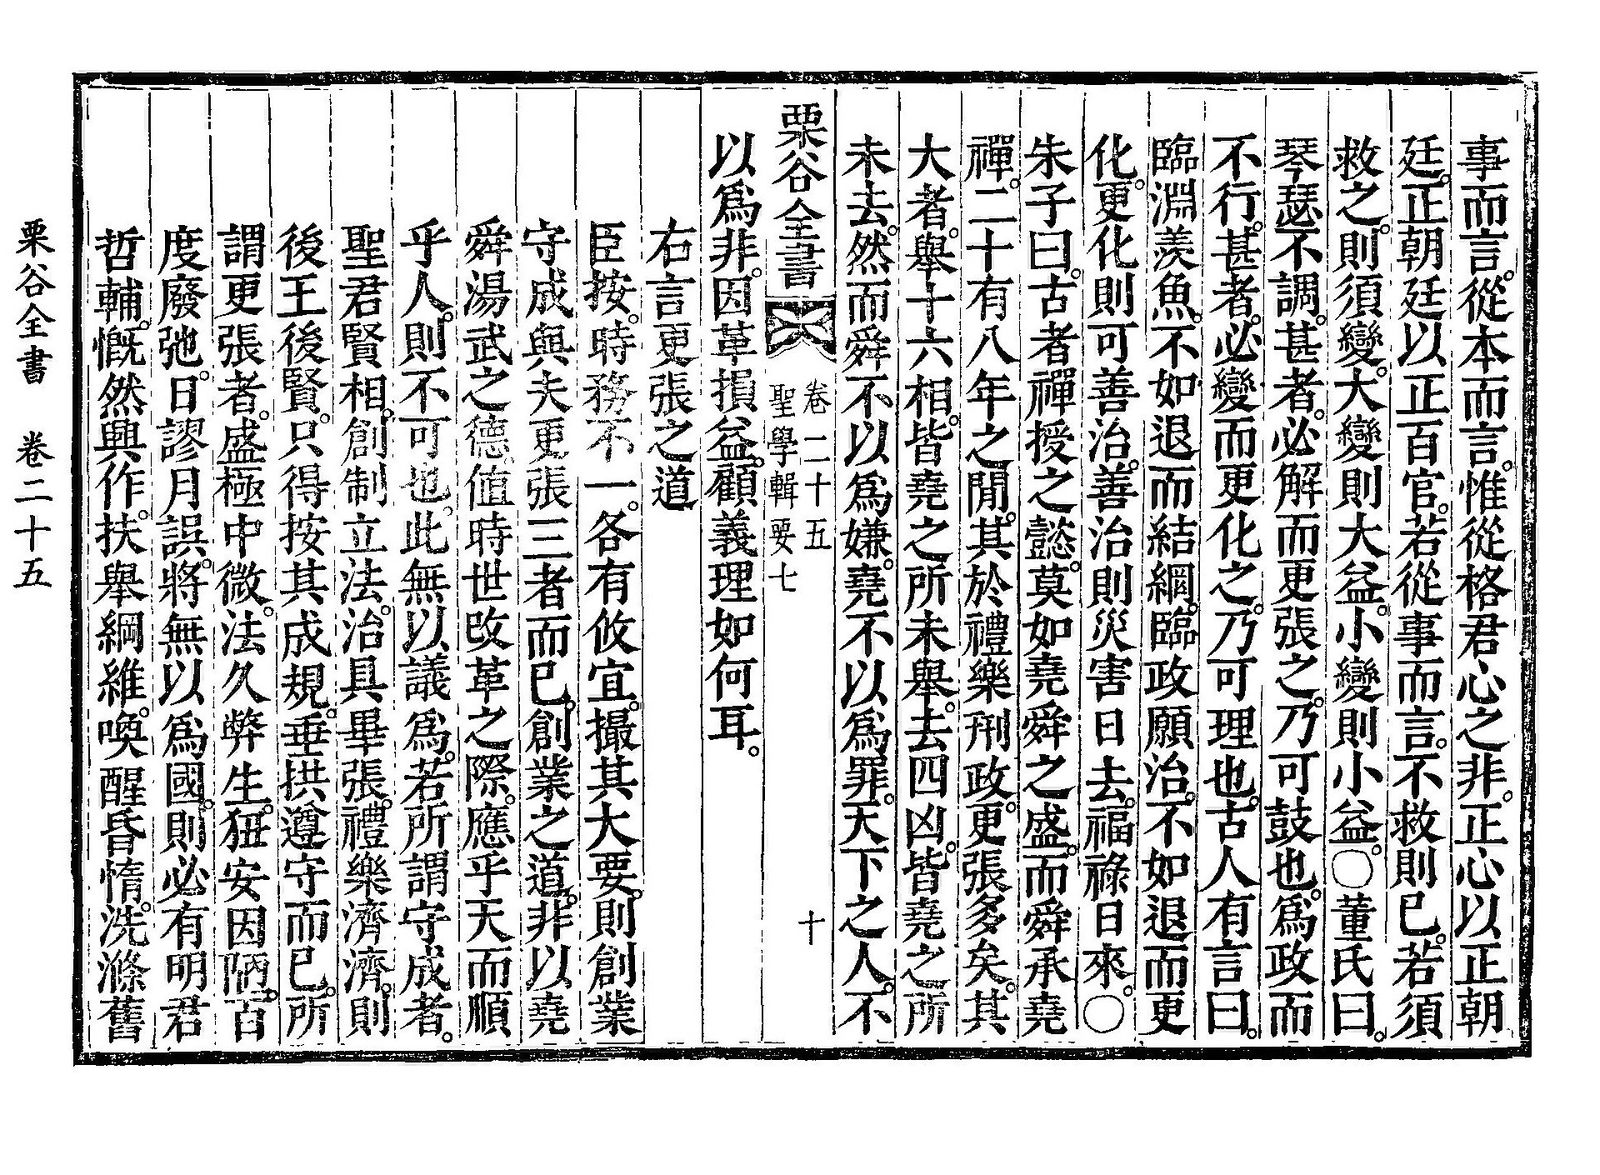 事而言。從本而言。惟從格君心之非。正心以正朝
廷。正朝廷以正百官。若從事而言。不救則已。若須
救之。則須變。大變則大益。小變則小益。○董氏曰。
琴瑟不調。甚者。必解而更張之。乃可鼓也。爲政而
不行。甚者。必變而更化之。乃可理也。古人有言曰。
臨淵羨魚。不如退而結網。臨政願治。不如退而更
化。更化則可善治。善治則災害日去。福祿日來。○
朱子曰。古者禪授之懿。莫如堯舜之盛。而舜承堯
禪。二十有八年之閒。其於禮樂刑政。更張多矣。其
大者。擧十六相。皆堯之所未擧。去四凶。皆堯之所
未去。然而舜不以爲嫌。堯不以爲罪。天下之人。不
栗谷全書 卷二十五 聖學輯要七 十
以爲非。因革損益。顧義理如何耳。
右言更張之道
臣按。時務不一。各有攸宜。撮其大要。則創業
守成與夫更張三者而已。創業之道。非以堯
舜湯武之德。値時世改革之際。應乎天而順
乎人。則不可也。此無以議爲。若所謂守成者。
聖君賢相。創制立法。治具畢張。禮樂濟濟。則
後王後賢。只得按其成規。垂拱遵守而已。所
謂更張者。盛極中微。法久弊生。狃安因陋。百
度廢弛。日謬月誤。將無以爲國。則必有明君
哲輔。慨然興作。扶擧綱維。喚醒昏惰。洗滌舊
栗谷全書 卷二十五